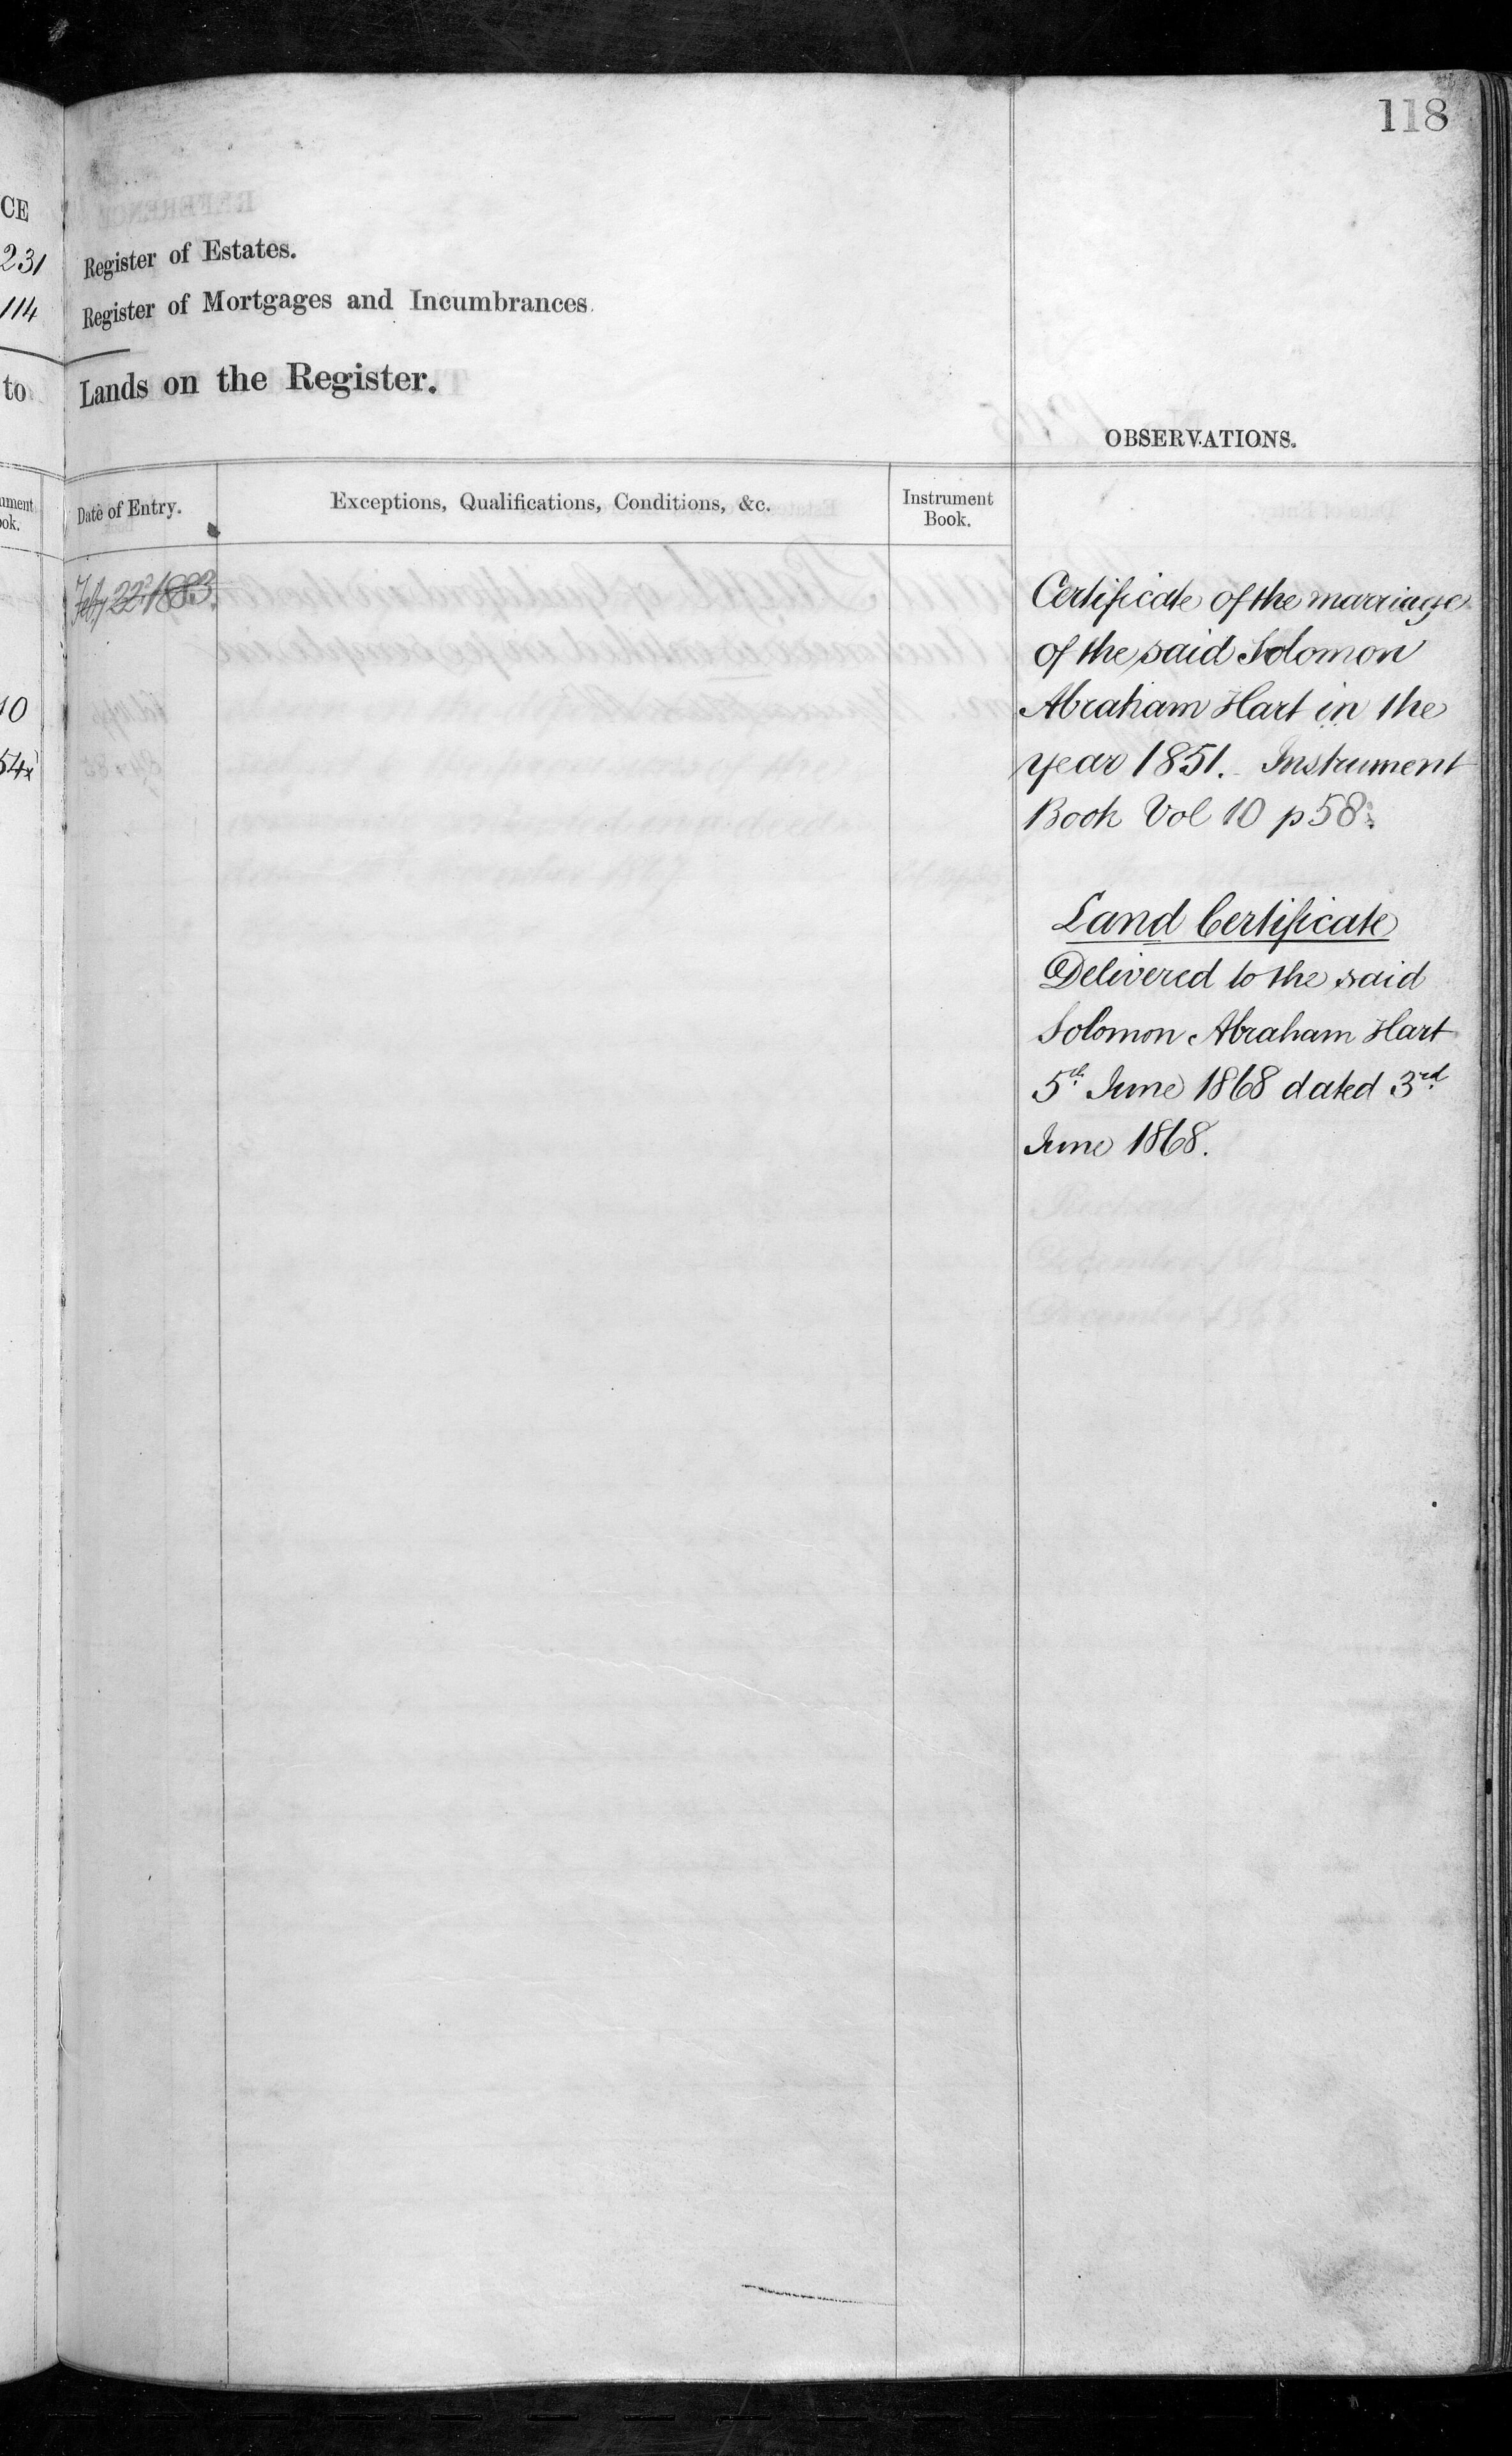 118
CE
231
114
to
Register of Estates.
Register of Mortgages and Incumbrances.
Lands on the Register.
OBSERVATIONS.
Date of Entry.
Exceptions, Qualifications, Conditions, &c.
Instrument
Book.
Feby 22d 1883.
10
54x
Certificate of the marriage
of the said Solomon
Abraham Hart in the
year 1851. Instrument
Book Vol 10 p 58.
Land Certificate
Delivered to the said
Solomon Abraham Hart
5th June 1868 dated 3rd
June 1868.